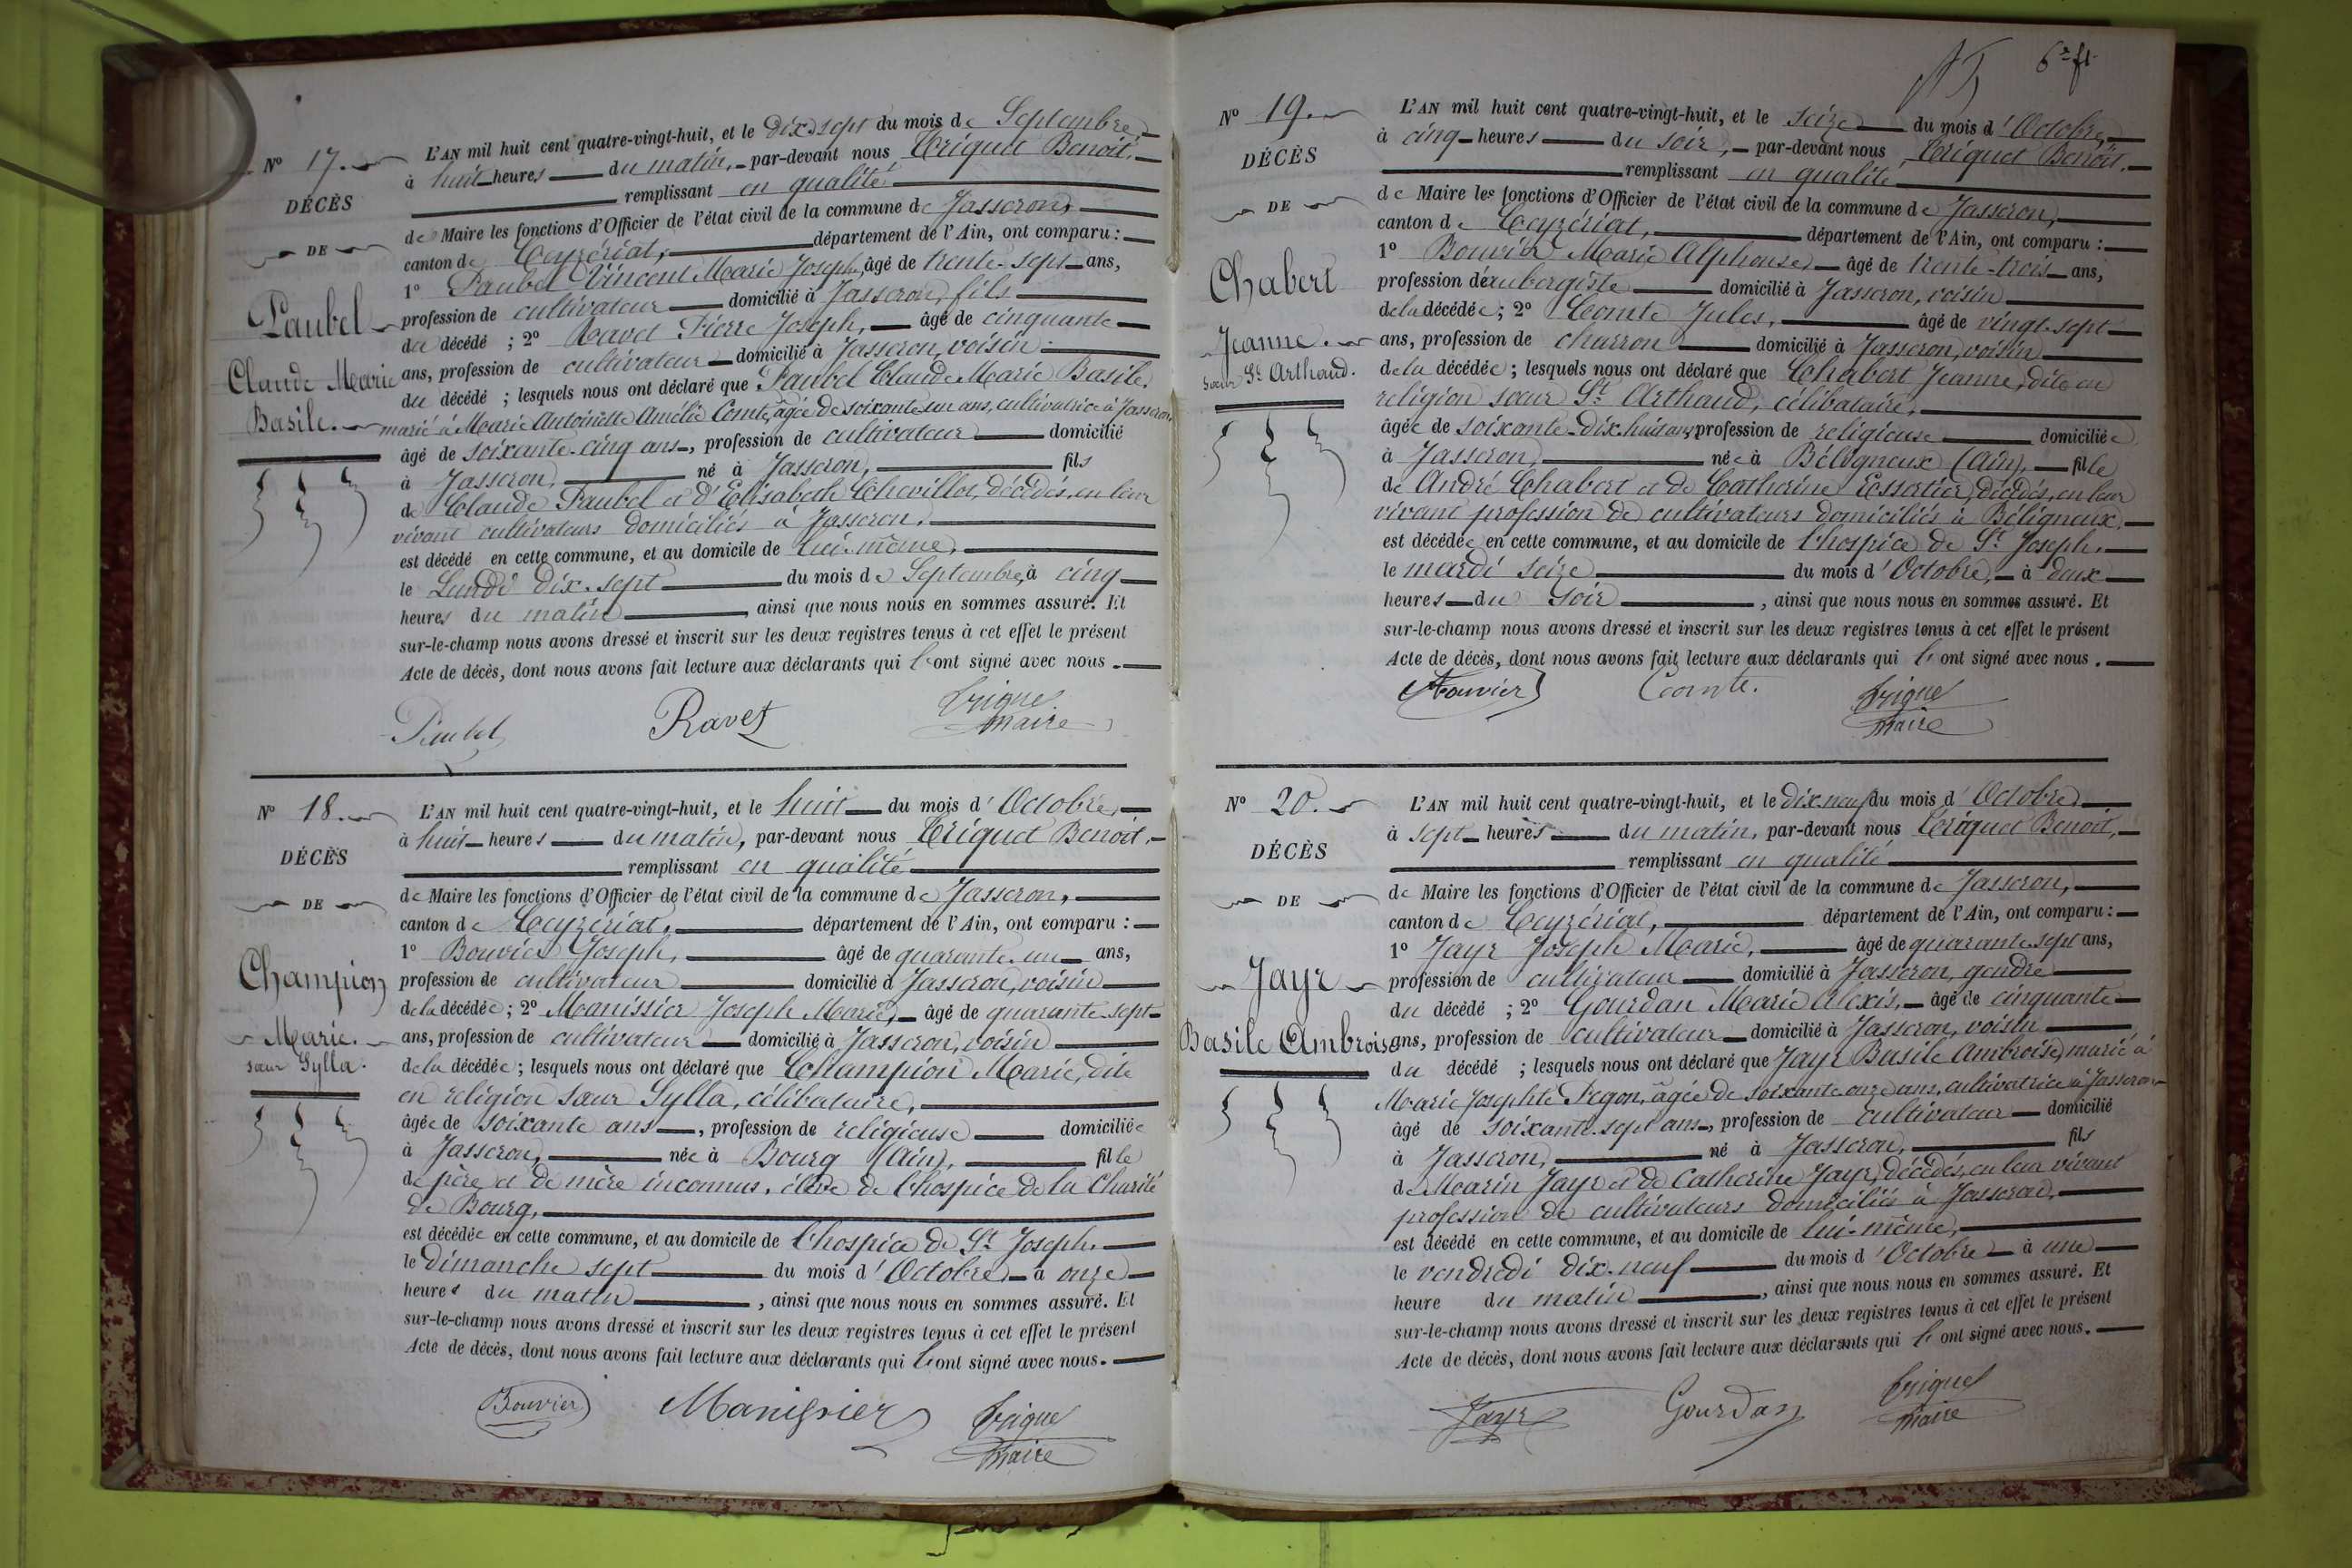 N° 17.
DÉCÈS
DE
Paubel
Claude Marie
Basile.
L'AN mil huit cent quatre-vingt-huit, et le dix-sept du mois de Septembre,
à huit heures du matin, par-devant nous Triquet Benoit,
remplissant en qualité
de Maire les fonctions d'Officier de l'état civil de la commune de Jasseron,
canton de Ceyzériat, département de l'Ain, ont comparu :
1° Paubel Vincent Marie Joseph, âgé de trente-sept ans,
profession de cultivateur domicilié à Jasseron, fils
du décédé ; 2° Ravet Pierre Joseph, âgé de cinquante
ans, profession de cultivateur domicilié à Jasseron, voisin
du décédé ; lesquels nous ont déclaré que Paubel Claude Marie Basile,
marié à Marie Antoinette Amélie Comte, âgée de soixante-un ans, cultivatrice à Jasseron,
âgé de soixante-cinq ans, profession de cultivateur domicilié
à Jasseron, né à Jasseron, fils
de Claude Paubel et d'Elisabeth Chevillot, décédés, en leur
vivant cultivateurs domiciliés à Jasseron,
est décédé en cette commune, et au domicile de lui-même,
le Lundi dix-sept du mois de Septembre, à cinq
heures du matin, ainsi que nous nous en sommes assuré. Et
sur-le-champ nous avons dressé et inscrit sur les deux registres tenus à cet effet le présent
Acte de décès, dont nous avons fait lecture aux déclarants qui l'ont signé avec nous.
Paubel Ravet Triquet
maire
N° 18.
DÉCÈS
DE
Champion
Marie.
sœur Sylla.
L'AN mil huit cent quatre-vingt-huit, et le huit du mois d'Octobre,
à huit heures du matin, par-devant nous Triquet Benoit,
remplissant en qualité
de Maire les fonctions d'Officier de l'état civil de la commune de Jasseron,
canton de Ceyzériat, département de l'Ain, ont comparu :
1° Bouvier Joseph, âgé de quarante-un ans,
profession de cultivateur domicilié à Jasseron, voisin
de la décédée ; 2° Manissier Joseph Marie, âgé de quarante-sept
ans, profession de cultivateur domicilié à Jasseron, voisin
de la décédée ; lesquels nous ont déclaré que Champion Marie, dite
en religion sœur Sylla, célibataire,
âgée de soixante ans, profession de religieuse domiciliée
à Jasseron, née à Bourg (Ain), fille
de père et de mère inconnus, élève de l'hospice de la Charité
de Bourg,
est décédée en cette commune, et au domicile de l'hospice de St Joseph,
le dimanche sept du mois d'Octobre, à onze
heures du matin, ainsi que nous nous en sommes assuré. Et
sur-le-champ nous avons dressé et inscrit sur les deux registres tenus à cet effet le présent
Acte de décès, dont nous avons fait lecture aux déclarants qui l'ont signé avec nous.
Bouvier Manissier Triquet
maire
N° 19.
DÉCÈS
DE
Chabert
Jeanne.
sœur St Arthaud.
L'AN mil huit cent quatre-vingt-huit, et le seize du mois d'Octobre,
à cinq heures du soir, par-devant nous Triquet Benoit,
remplissant en qualité
de Maire les fonctions d'Officier de l'état civil de la commune de Jasseron,
canton de Ceyzériat, département de l'Ain, ont comparu :
1° Bouvier Marie Alphonse, âgé de trente-trois ans,
profession d'aubergiste domicilié à Jasseron, voisin
de la décédée ; 2° Comte Jules, âgé de vingt-sept
ans, profession de charron domicilié à Jasseron, voisin
de la décédée ; lesquels nous ont déclaré que Chabert Jeanne, dite en
religion sœur St Arthaud, célibataire,
âgée de soixante-dix-huit ans, profession de religieuse domiciliée
à Jasseron, née à Béligneux (Ain), fille
de André Chabert et de Catherine Essertier, décédés, en leur
vivant profession de cultivateurs domiciliés à Béligneux,
est décédée en cette commune, et au domicile de l'hospice de St Joseph,
le mardi seize du mois d'Octobre, à deux
heures du soir, ainsi que nous nous en sommes assuré. Et
sur-le-champ nous avons dressé et inscrit sur les deux registres tenus à cet effet le présent
Acte de décès, dont nous avons fait lecture aux déclarants qui l'ont signé avec nous.
Bouvier Comte. Triquet
maire
N° 20.
DÉCÈS
DE
Jayr
Basile Ambroise
L'AN mil huit cent quatre-vingt-huit, et le dix-neuf du mois d'Octobre,
à sept heures du matin, par-devant nous Triquet Benoit,
remplissant en qualité
de Maire les fonctions d'Officier de l'état civil de la commune de Jasseron,
canton de Ceyzériat, département de l'Ain, ont comparu :
1° Jayr Joseph Marie, âgé de quarante-sept ans,
profession de cultivateur domicilié à Jasseron, gendre
du décédé ; 2° Gourdan Marie Alexis, âgé de cinquante
ans, profession de cultivateur domicilié à Jasseron, voisin
du décédé ; lesquels nous ont déclaré que Jayr Basile Ambroise, marié à
Marie Josephte Pegon, âgée de soixante-onze ans, cultivatrice à Jasseron
âgé de soixante-sept ans, profession de cultivateur domicilié
à Jasseron, né à Jasseron, fils
de Marin Jayr et de Catherine Jayr, décédés, en leur vivant
profession de cultivateurs domiciliés à Jasseron,
est décédé en cette commune, et au domicile de lui-même,
le vendredi dix-neuf du mois d'Octobre à une
heure du matin, ainsi que nous nous en sommes assuré. Et
sur-le-champ nous avons dressé et inscrit sur les deux registres tenus à cet effet le présent
Acte de décès, dont nous avons fait lecture aux déclarants qui l'ont signé avec nous.
Jayr Gourdan Triquet
maire